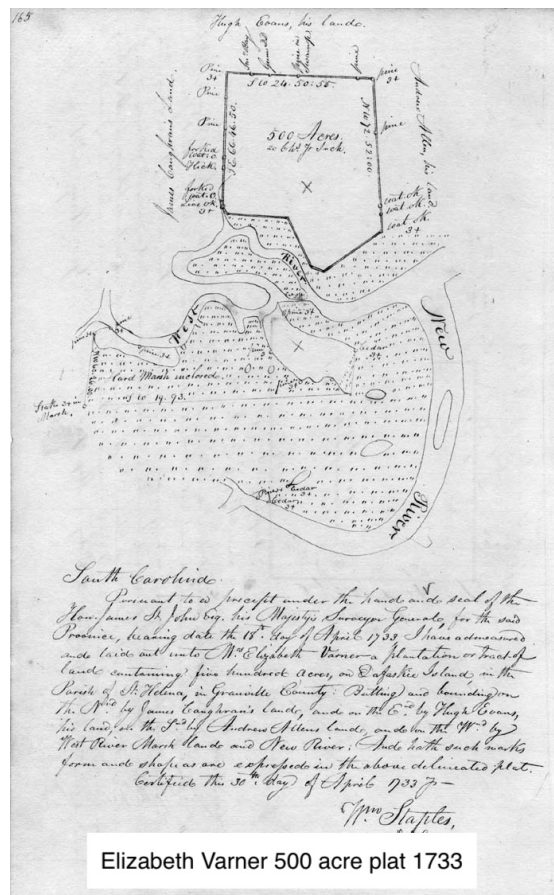 165
Hugh Evans, his lands.
pine
3+
pine
3+
Pine
3+
Pine
Pine
James Caughrain's Land.
Andrew Allen, his land
S W 24. 50: 55.
500 Acres.
20 Chs. Pr Inch.
S E 66. 46. 50.
N W 72. 52: 00
pine
forked
3+
oak
oak
3+
River
West
New
River
Hard Marsh inclosed
S W 19. 93.
Stake 3+ in
Marsh.
pine 3+
Cedar
3+
Pine & Cedar
3+
South Carolina.
Pursuant to a precept under the hand and seal of the
Hon. James St. John Esq. his Majesty's Surveyor General, for the said
Province, bearing date the 18th. day of April 1733 I have admeasured
and laid out unto Mrs Elizabeth Varner a plantation or tract of
land containing five hundred acres, on Dafuskie Island, in the
Parish of St. Helena, in Granville County: Butting and bounding on
the Nrd by James Caughrain's lands, and on the Erd by Hugh Evans,
his land, on the Srd by Andrew Allens lands, and on the Wrd by
West River Marsh lands and New River: And hath such marks
form and shape as are expressed in the above delineated plat.
Certified this 30th. day of April 1733
Wm Staples,
Elizabeth Varner 500 acre plat 1733